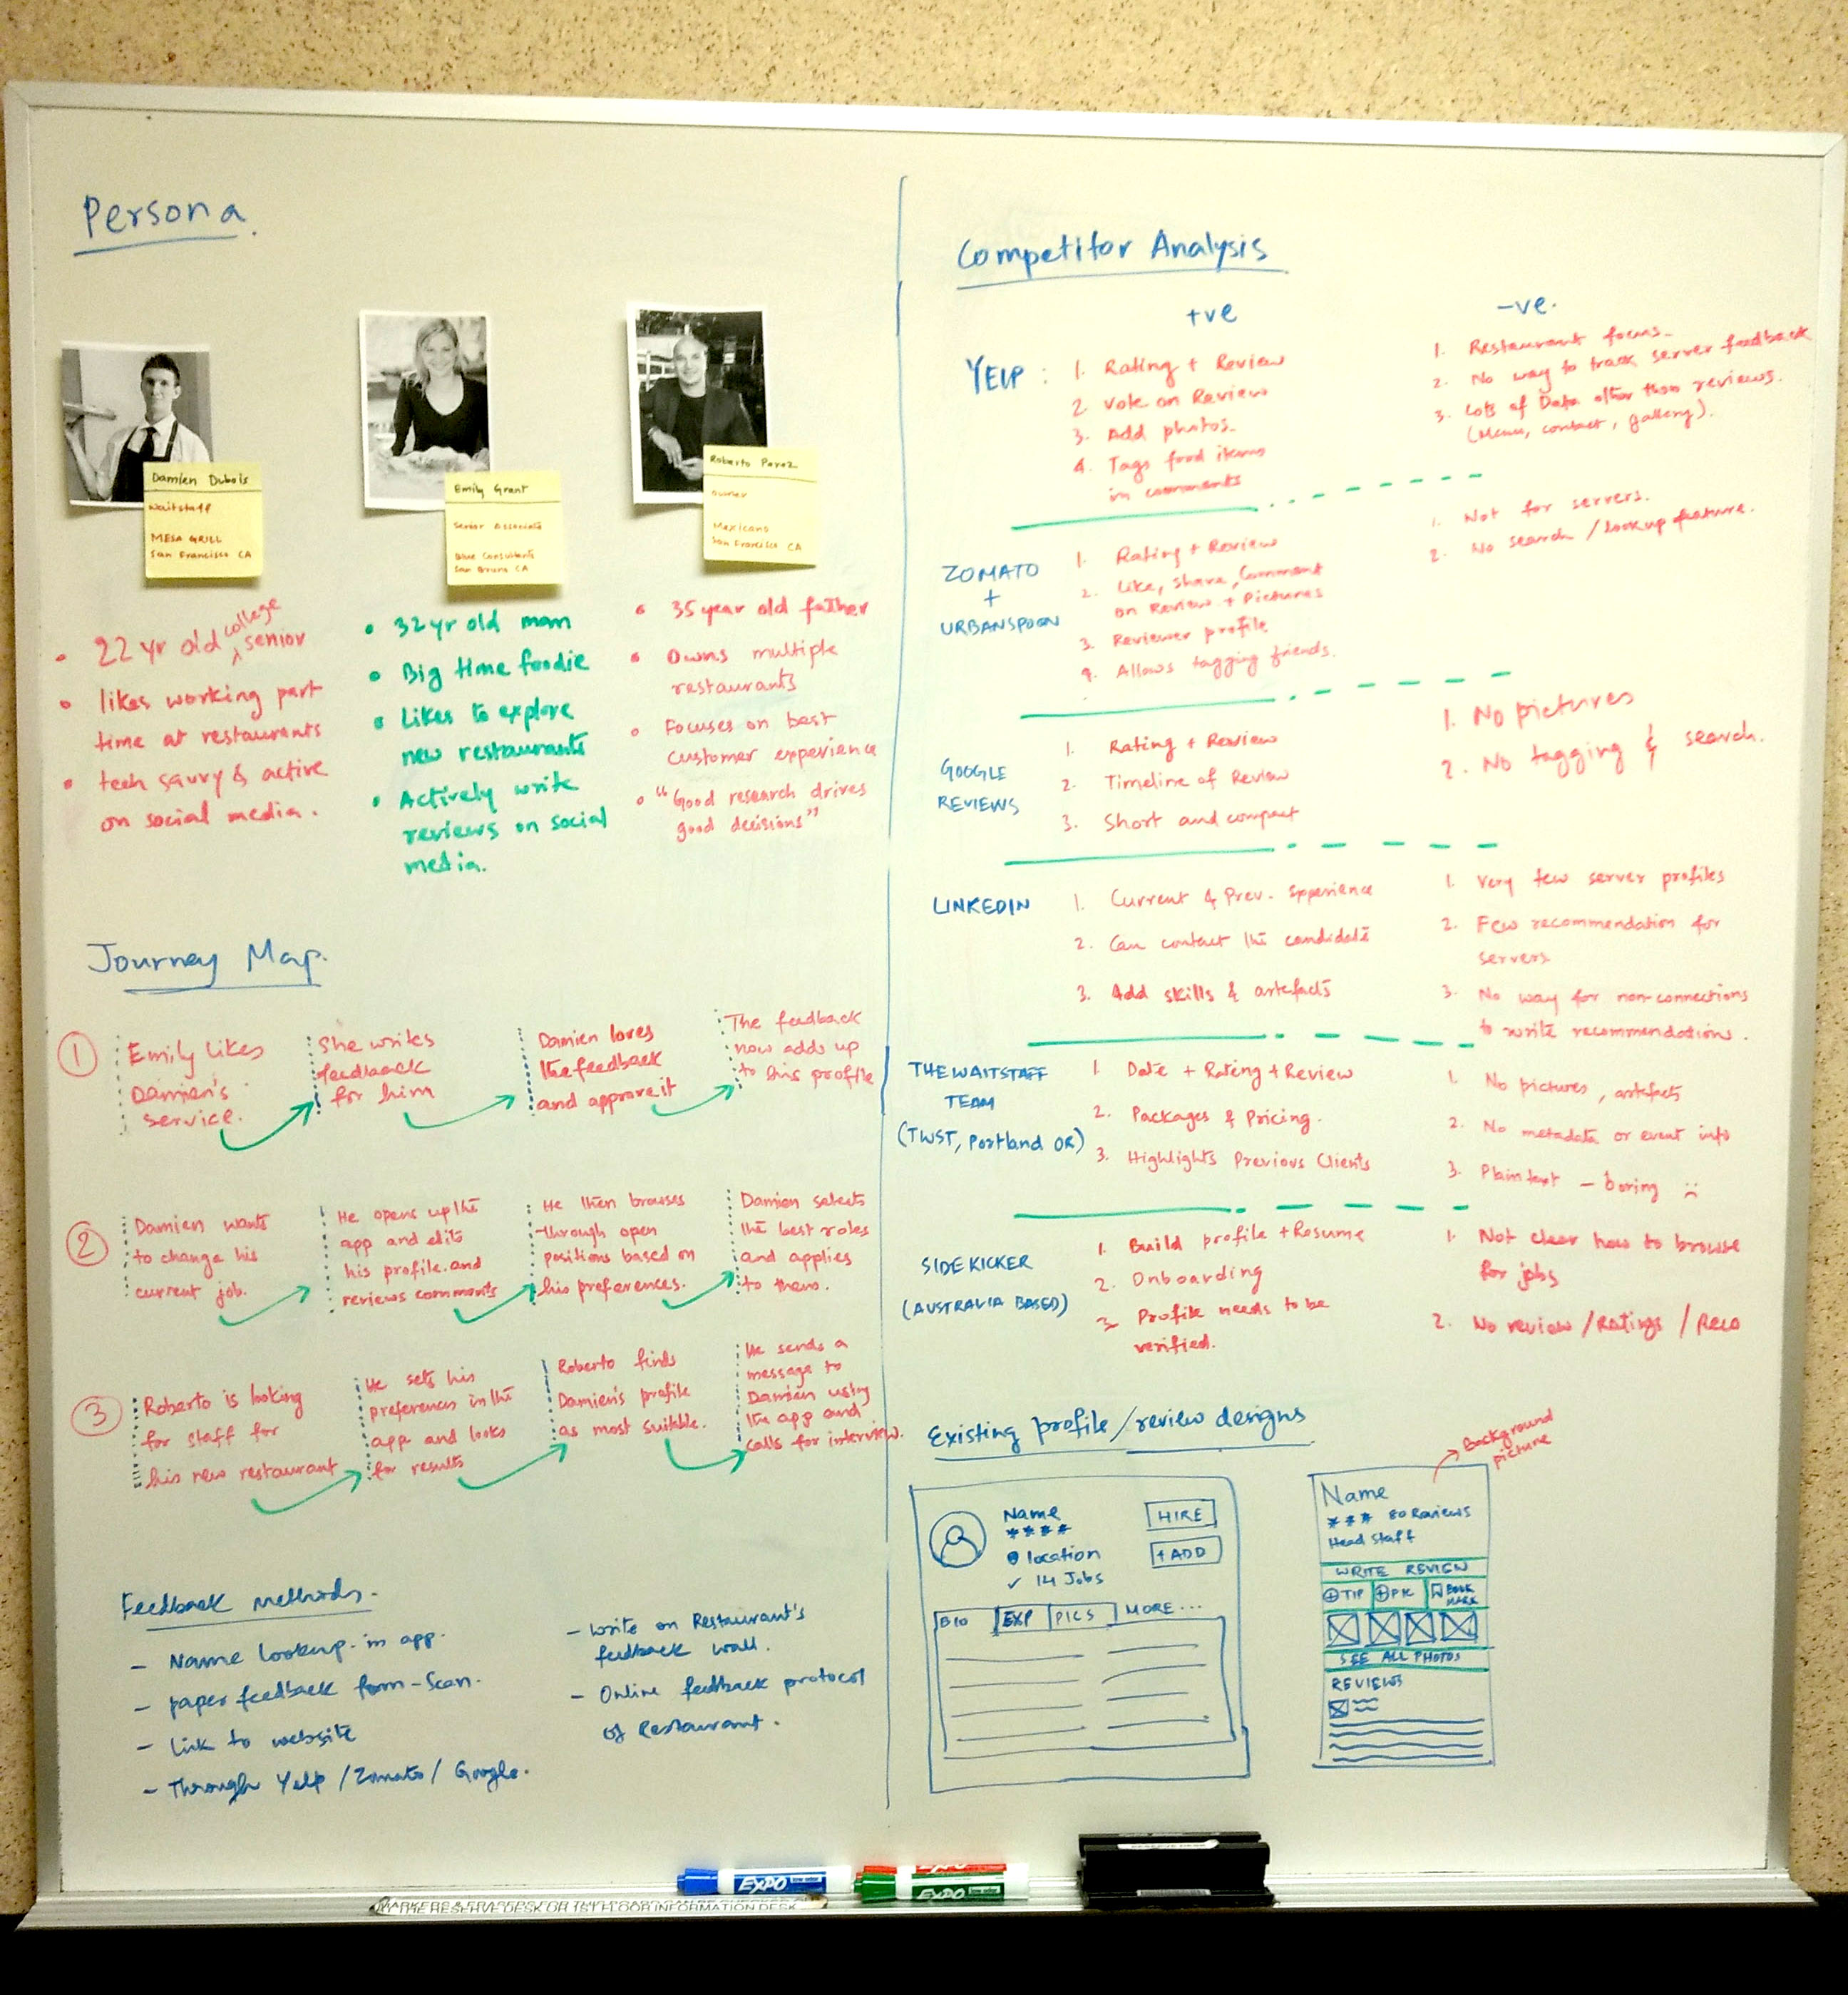 Persona.
Damien Dubois
Waitstaff
MESA GRILL
San Francisco CA
Emily Grant
Senior Associate
Blue Consultants
San Bruno CA
Roberto Perez
Owner
Mexicano
San Francisco CA
• 22 yr old college senior
• likes working part
time at restaurants
• tech savvy & active
on social media.
• 32 yr old mom
• Big time foodie
• Likes to explore
new restaurants
• Actively write
reviews on social
media.
• 35 year old father
• Owns multiple
restaurants
• Focuses on best
customer experience
• "Good research drives
good decisions"
Journey Map.
1
Emily likes
Damien's
service.
She writes
feedback
for him
Damien loves
the feedback
and approve it
The feedback
now adds up
to his profile
2
Damien wants
to change his
current job.
He opens up the
app and edits
his profile and
reviews comments
He then browses
through open
positions based on
his preferences.
Damien selects
the best roles
and applies
to them.
3
Roberto is looking
for staff for
his new restaurant
He sets his
preferences in the
app and looks
for results
Roberto finds
Damien's profile
as most suitable.
He sends a
message to
Damien using
the app and
calls for interview.
Feedback methods.
- Name lookup in app.
- paper feedback form - Scan.
- Link to website
- Through Yelp / Zomato / Google.
- Write on Restaurant's
feedback wall.
- Online feedback protocol
of Restaurant.
Competitor Analysis
+ve
-ve.
YELP :
1. Rating + Review
2. Vote on Review
3. Add photos.
4. Tags food items
in comments
1. Restaurant focus.
2. No way to track server feedback
3. Lots of Data other than reviews.
(Menu, contact, gallery).
ZOMATO
+
URBANSPOON
1. Rating + Review
2. Like, share, Comment
on Review + Pictures
3. Reviewer profile
4. Allows tagging friends.
1. Not for servers.
2. No search / lookup feature.
GOOGLE
REVIEWS
1. Rating + Review
2. Timeline of Review
3. Short and compact
1. No pictures
2. No tagging & search.
LINKEDIN
1. Current & Prev. Experience
2. Can contact the candidate
3. Add skills & artefacts
1. Very few server profiles
2. Few recommendation for
servers
3. No way for non-connections
to write recommendations.
THE WAITSTAFF
TEAM
(TWST, Portland OR)
1. Date + Rating + Review
2. Packages & Pricing.
3. Highlights Previous Clients
1. No pictures, artefacts
2. No metadata or event info
3. Plain text - boring :(
SIDEKICKER
(AUSTRALIA BASED)
1. Build profile + Resume
2. Onboarding
3. Profile needs to be
verified.
1. Not clear how to browse
for jobs
2. No review / Ratings / Reco
Existing profile / review designs
Name
****
location
✓ 14 Jobs
HIRE
+ ADD
BIO
EXP
PICS
MORE ...
Background
picture
Name
*** 80 Reviews
Head Staff
WRITE REVIEW
+ TIP
+ PIC
BOOK
MARK
SEE ALL PHOTOS
REVIEWS
EXPO
EXPO
MARKERS & ERASERS FOR THIS BOARD CAN BE CHECKED
THE RESERVE DESK OR 1ST FLOOR INFORMATION DESK